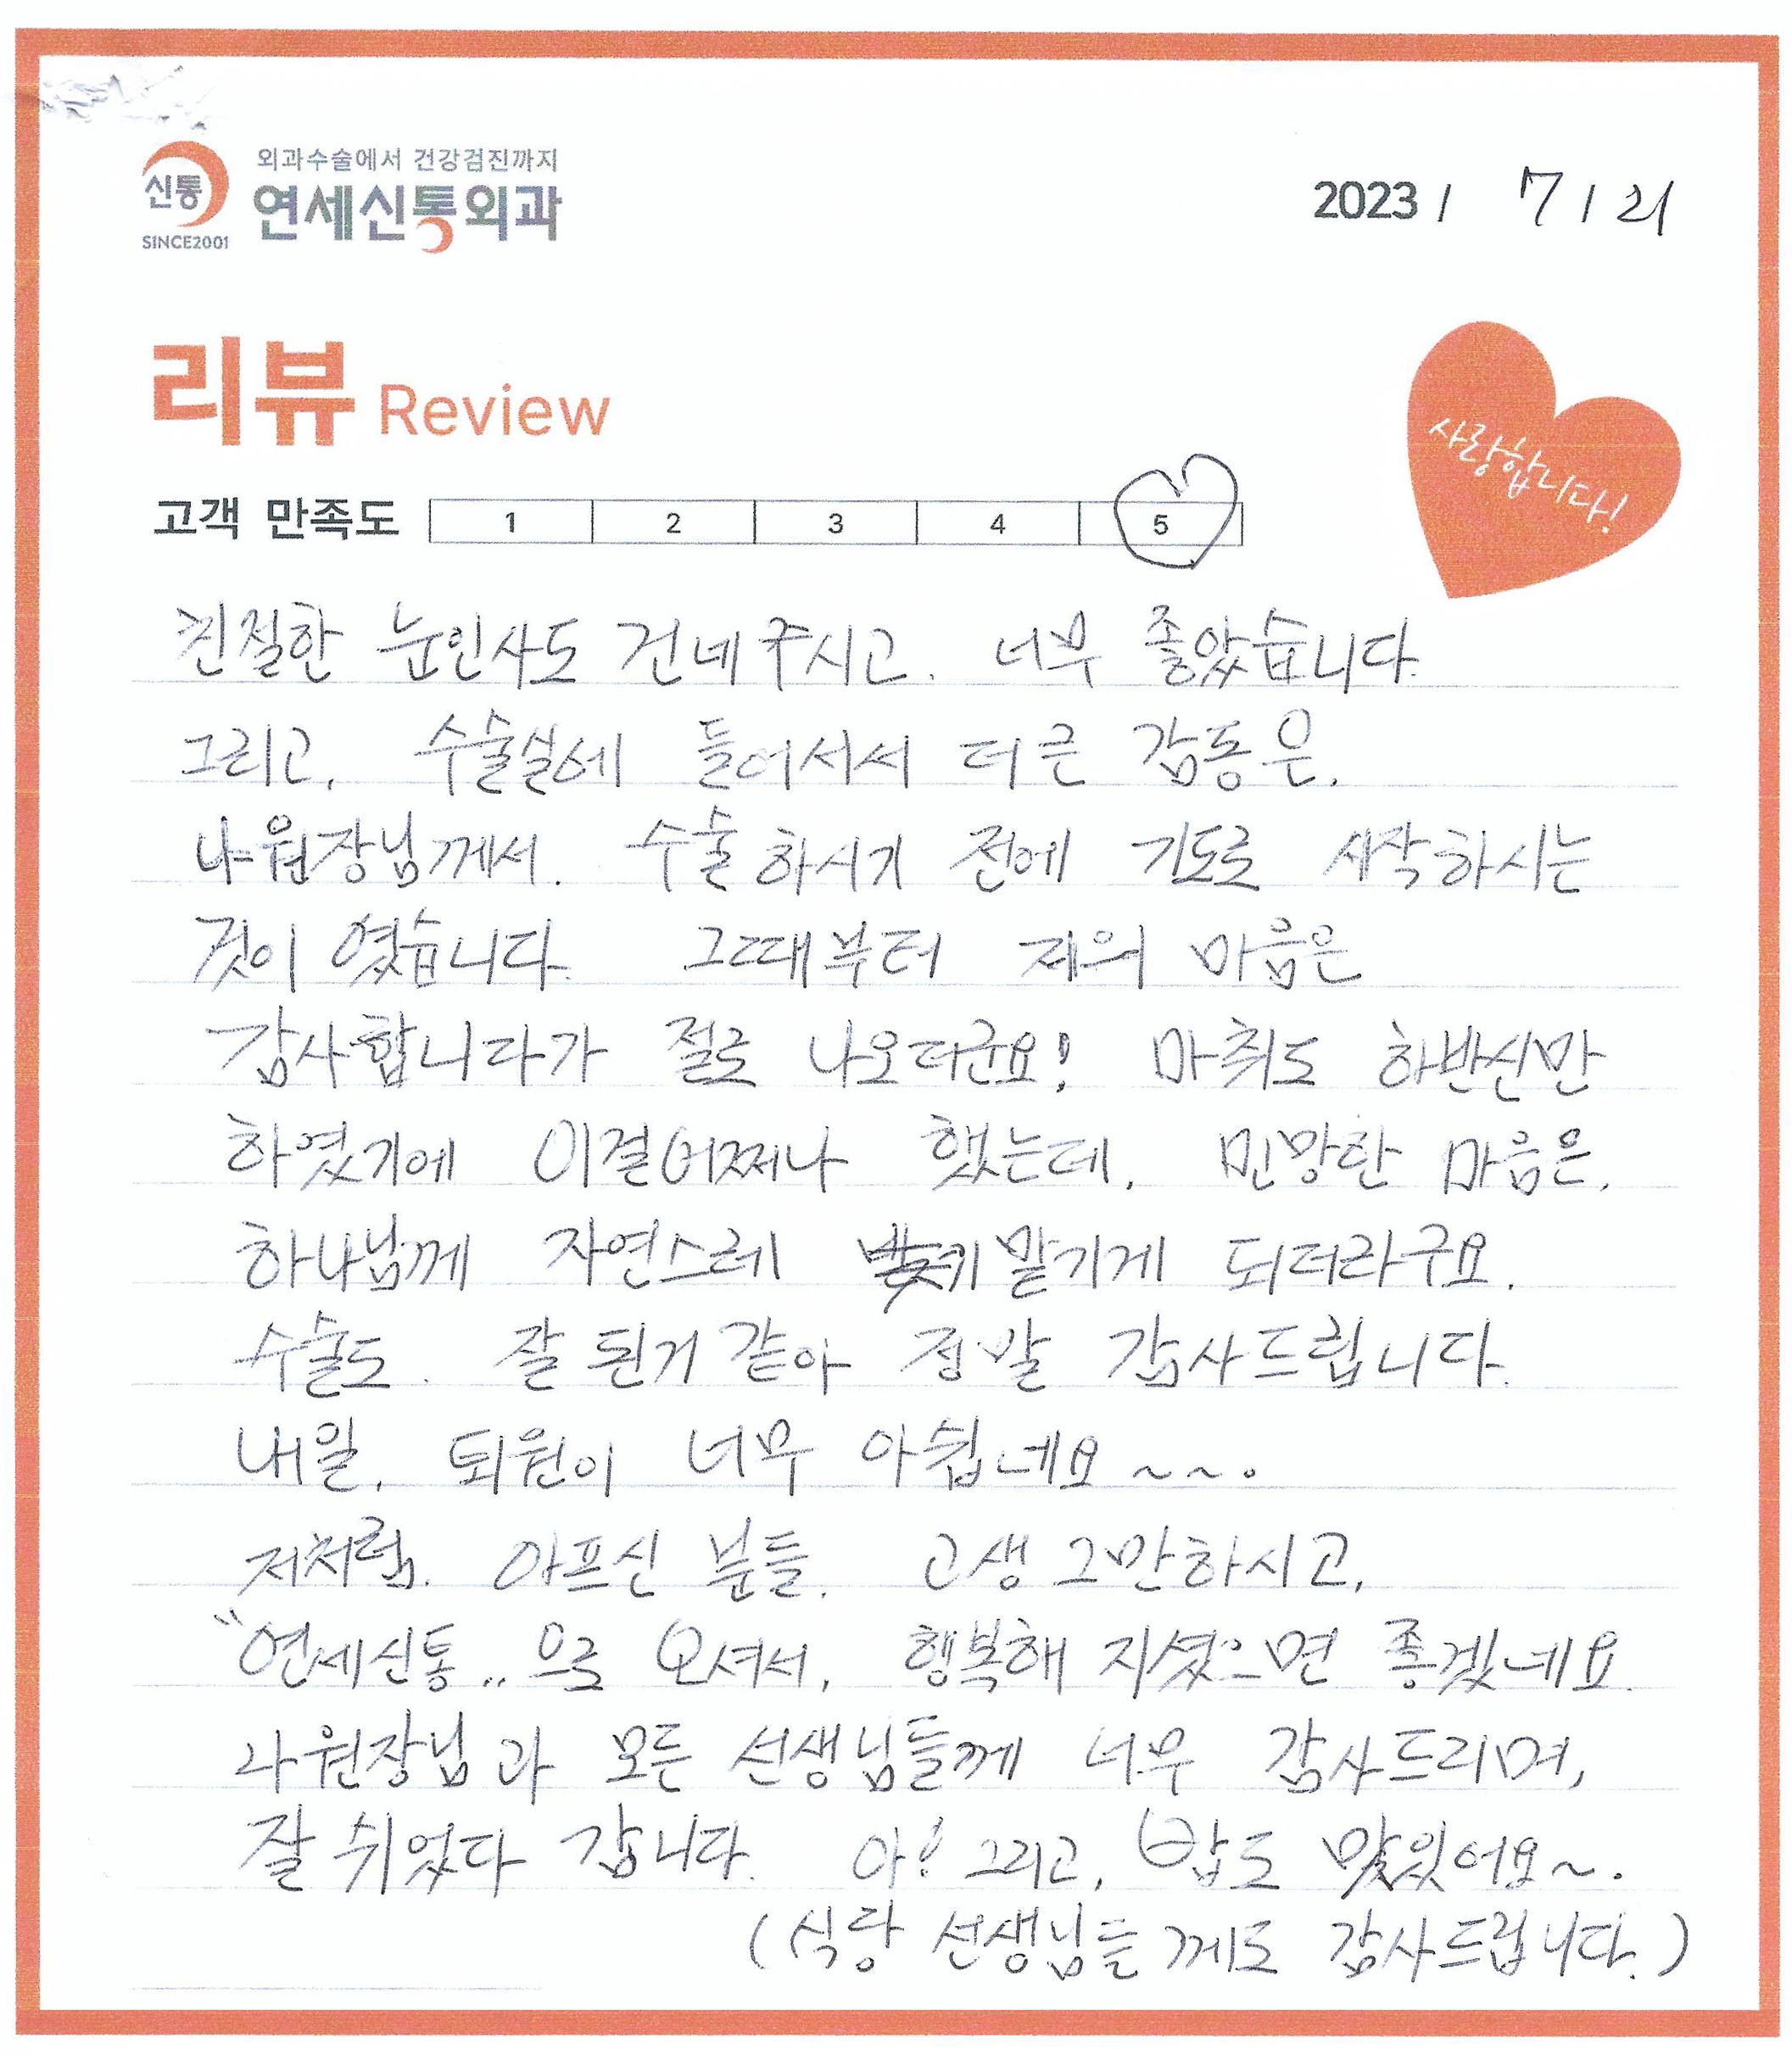 외과수술에서 건강검진까지
신통
연세신통외과
SINCE2001
2023 / 7 / 21
리뷰 Review
사랑합니다!
고객 만족도 1 2 3 4 5
친절한 눈인사도 건네주시고. 너무 좋았습니다.
그리고, 수술실에 들어서서 더 큰 감동은.
나원장님께서. 수술하시기 전에 기도로 시작하시는
것이 였습니다. 그때부터 저의 마음은
감사합니다가 절로 나오더군요! 마취도 하반신만
하였기에 이걸어쩌나 했는데, 민망한 마음은,
하나님께 자연스레 맡기게 되더라구요.
수술도. 잘 된거 같아 정말 감사드립니다.
내일, 퇴원이 너무 아쉽네요~~.
저처럼. 아프신 분들. 고생 그만하시고,
"연세신통" 으로 오셔서, 행복해 지셨으면 좋겠네요.
나원장님과 모든 선생님들께 너무 감사드리며,
잘 쉬었다 갑니다. 아! 그리고, 밥도 맛있어요~.
(식당 선생님들께도 감사드립니다.)